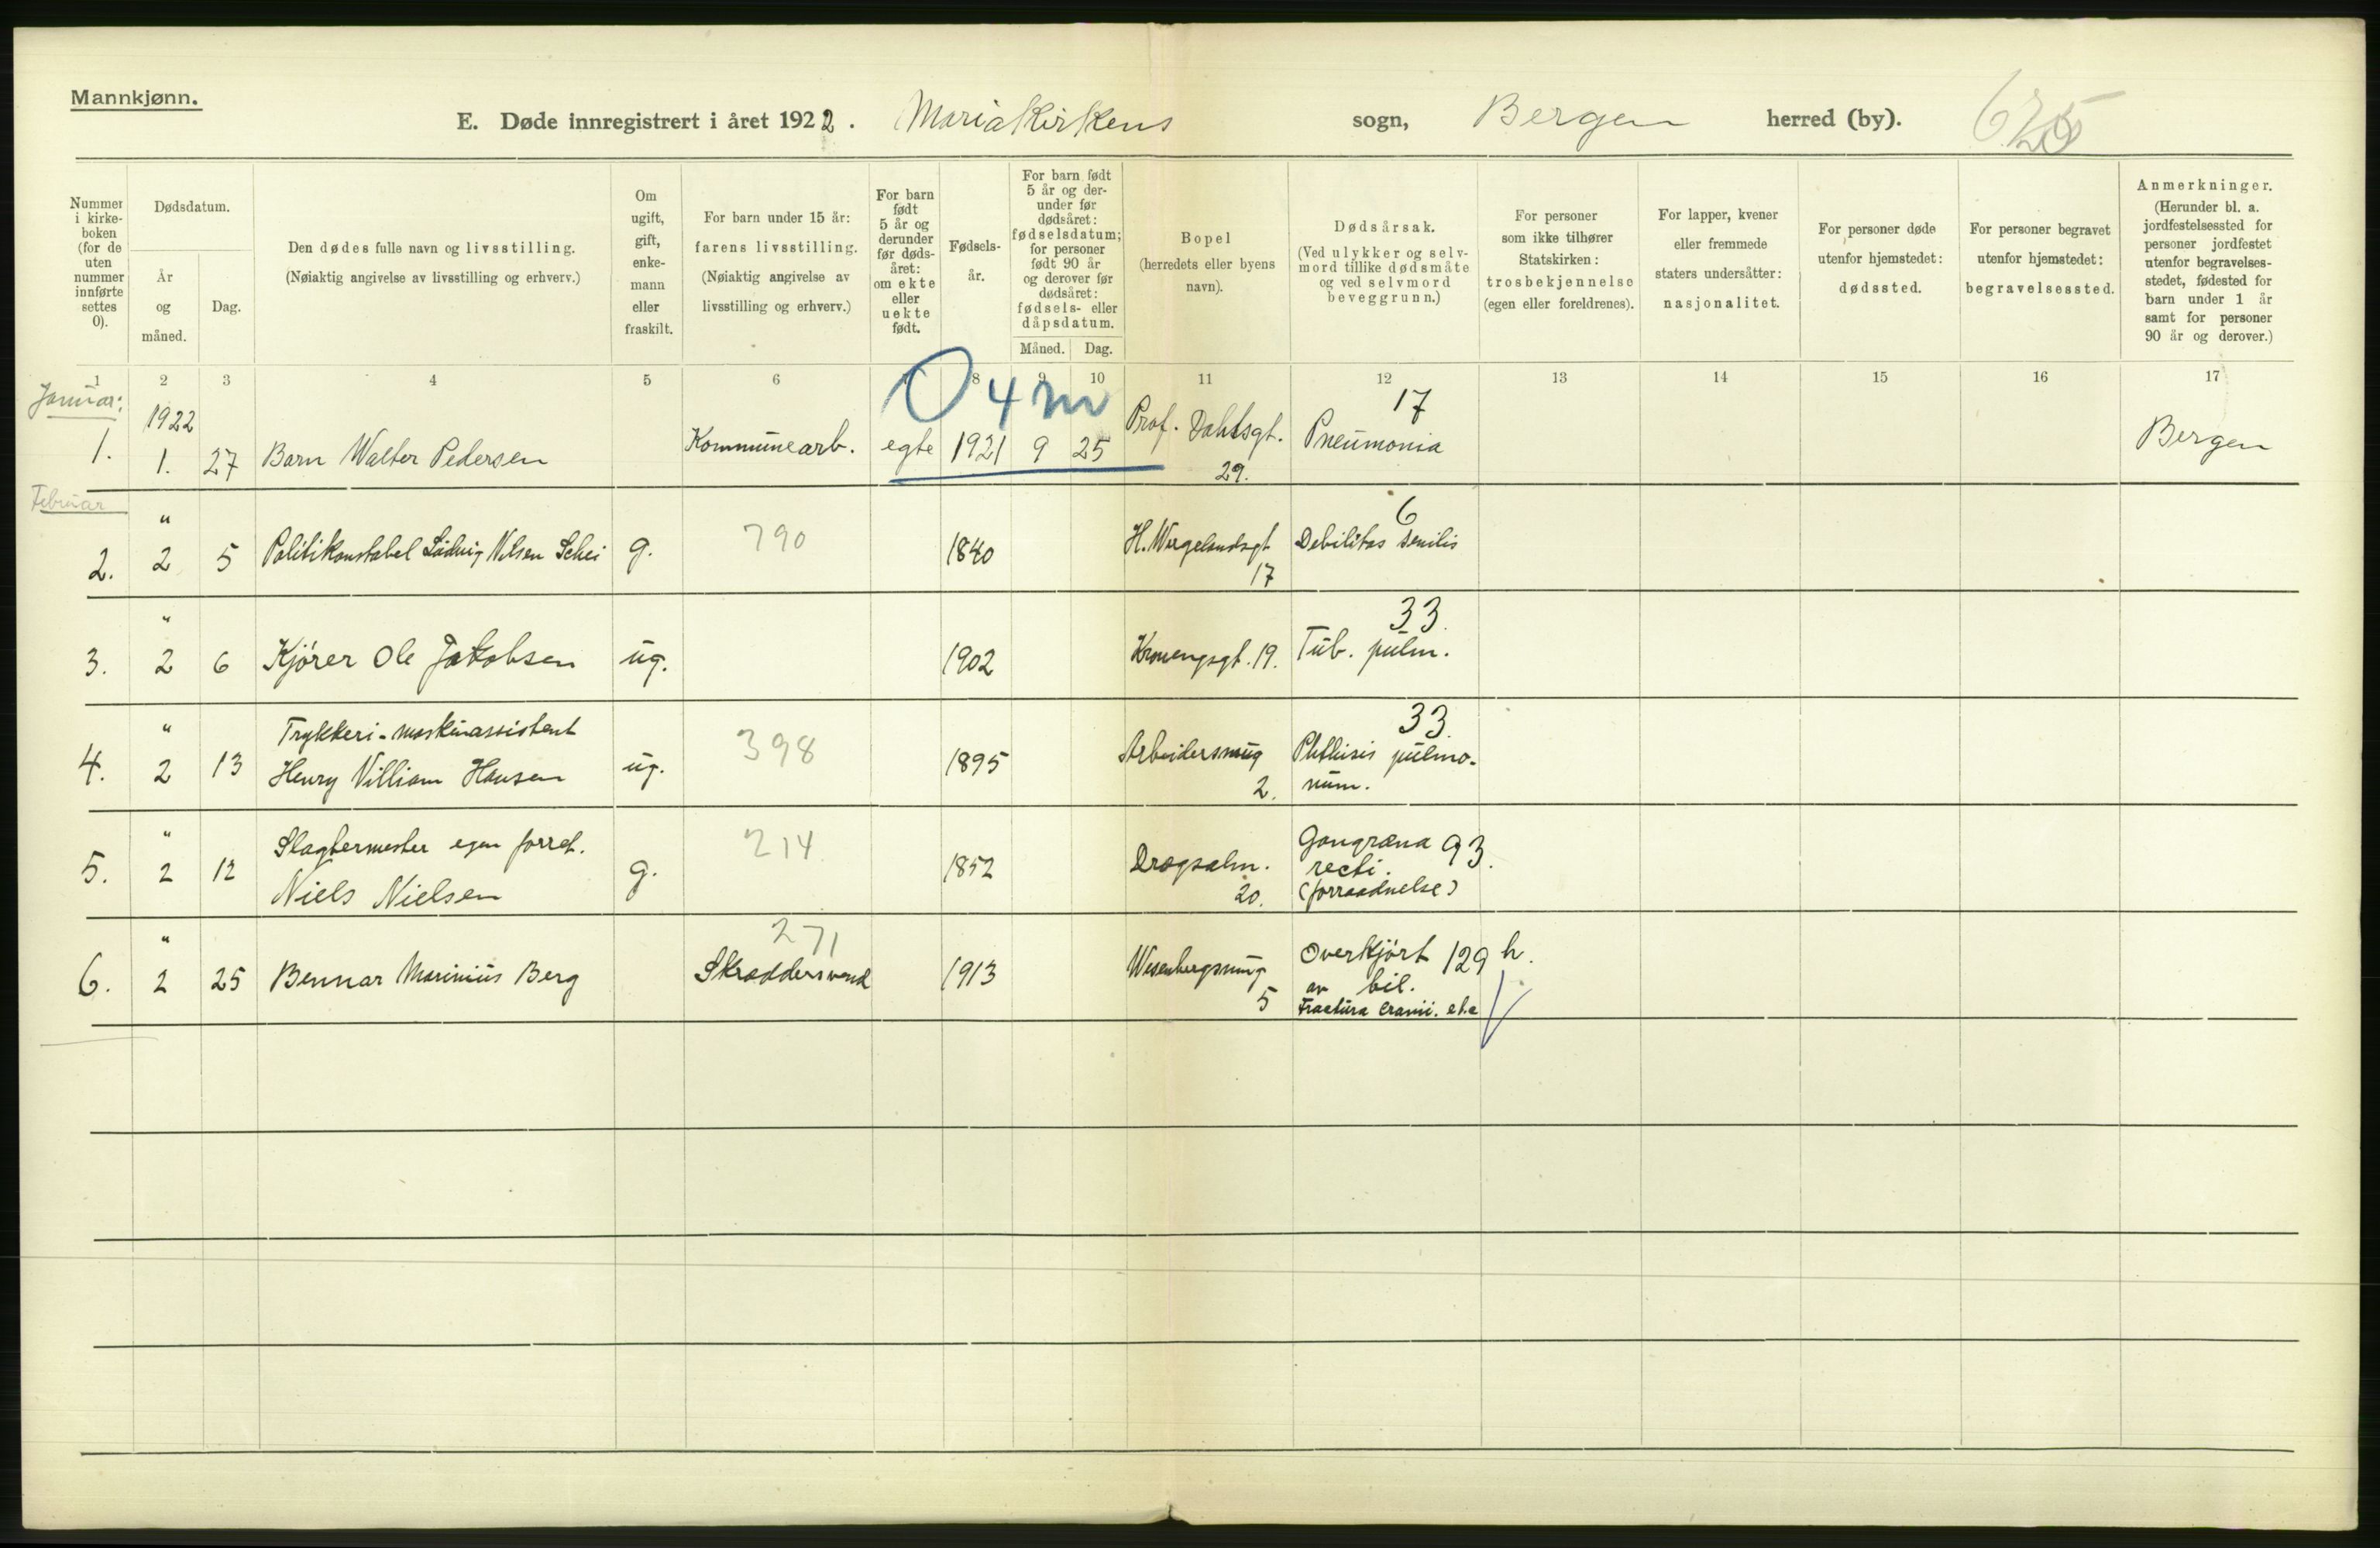 Mannkjønn.
E. Døde innregistrert i året 1922. Mariakirkens sogn, Bergen herred (by).
Nummer i kirke-boken (for de uten nummer innførte settes 0).
Dødsdatum.
År og måned.
Dag.
Den dødes fulle navn og livsstilling.
(Nøiaktig angivelse av livsstilling og erhverv.)
Om ugift, gift, enke-mann eller fraskilt.
For barn under 15 år:
farens livsstilling.
(Nøiaktig angivelse av
livsstilling og erhverv.)
For barn født 5 år og derunder før døds-året: om ekte eller uekte født.
Fødsels-år.
For barn født 5 år og der-under før dødsåret: fødselsdatum; for personer født 90 år og derover før dødsåret: fødsels- eller dåpsdatum.
Måned. Dag.
Bopel
(herredets eller byens navn).
Dødsårsak.
(Ved ulykker og selv-mord tillike dødsmåte og ved selvmord beveggrunn.)
For personer som ikke tilhører Statskirken: trosbekjennelse (egen eller foreldrenes).
For lapper, kvener eller fremmede staters undersåtter: nasjonalitet.
For personer døde utenfor hjemstedet: dødssted.
For personer begravet utenfor hjemstedet: begravelsessted.
Anmerkninger.
(Herunder bl. a. jordfestelsessted for personer jordfestet utenfor begravelses-stedet, fødested for barn under 1 år samt for personer 90 år og derover.)
1 2 3 4 5 6 8 9 10 11 12 13 14 15 16 17
Januar:
0 4 m
1922
1. 1. 27 Barn Walter Pedersen Kommunearb. egte 1921 9 25 Prof. Dahlsgt. 29. 17 Pneumonia Bergen
Februar
2. " 2 5 Politikonstabel Ludvig Nilsen Schei g. 790 1840 H. Wergelandsgt 17 6 Debilitas senilis
3. " 2 6 Kjører Ole Jakobsen ug. 1902 Kroengsgt. 19. 33. Tub. pulm.
4. " 2 13 Trykkeri-maskinassistent
Henry Villiam Hansen ug. 398 1895 Arbeidersmug 2. 33. Phthisis pulmo-
num.
5. " 2 12 Slagtermester egen forret.
Niels Nielsen g. 214 1852 Dragsalm. 20. Gangræna 93.
recti.
(forraadnelse)
6. " 2 25 Bennar Marinius Berg 271 Skræddersvend 1913 Wesenbergsmug 5 Overkjört 129 h.
av bil.
Fractura cranii. etc